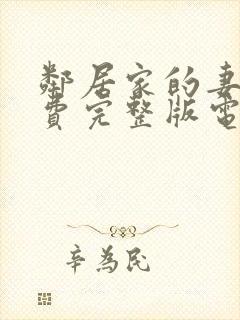 鄰居家的妻
費完整版電
辛為民